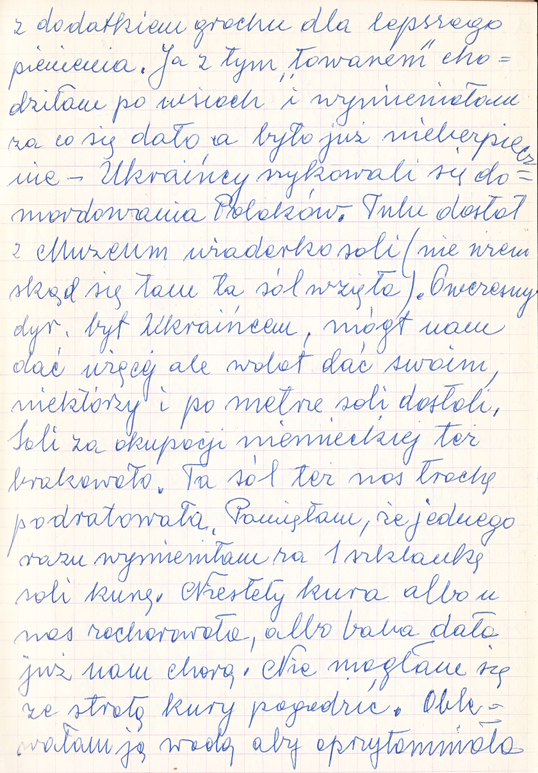 z dodatkiem grochu dla lepszego
pienienia. Ja z tym „towarem” cho=
dziłam po wsiach i wymieniałam
za co się dało a było już niebezpiecz
nie – Ukraińcy szykowali się do=
mordowania Polaków. Tulu dostał
z Muzeum wiaderko soli (nie wiem
skąd się tam ta sól wzięła). Ówczesny
dyr. był Ukraińcem, mógł nam
dać więcej ale wolał dać swoim,
niektórzy i po metrze soli dostali,
Soli za okupacji niemieckiej też
brakowało. Ta sól też nas trochę
podratowała. Pamiętam, że jednego
razu wymieniłam za 1 szklankę
soli kurę. Niestety kura albo u
nas zachorowała, albo baba dała
już nam chorą. Nie mogłam się
ze stratą kury pogodzić. Oble=
wałam ją wodą aby oprzytomniała